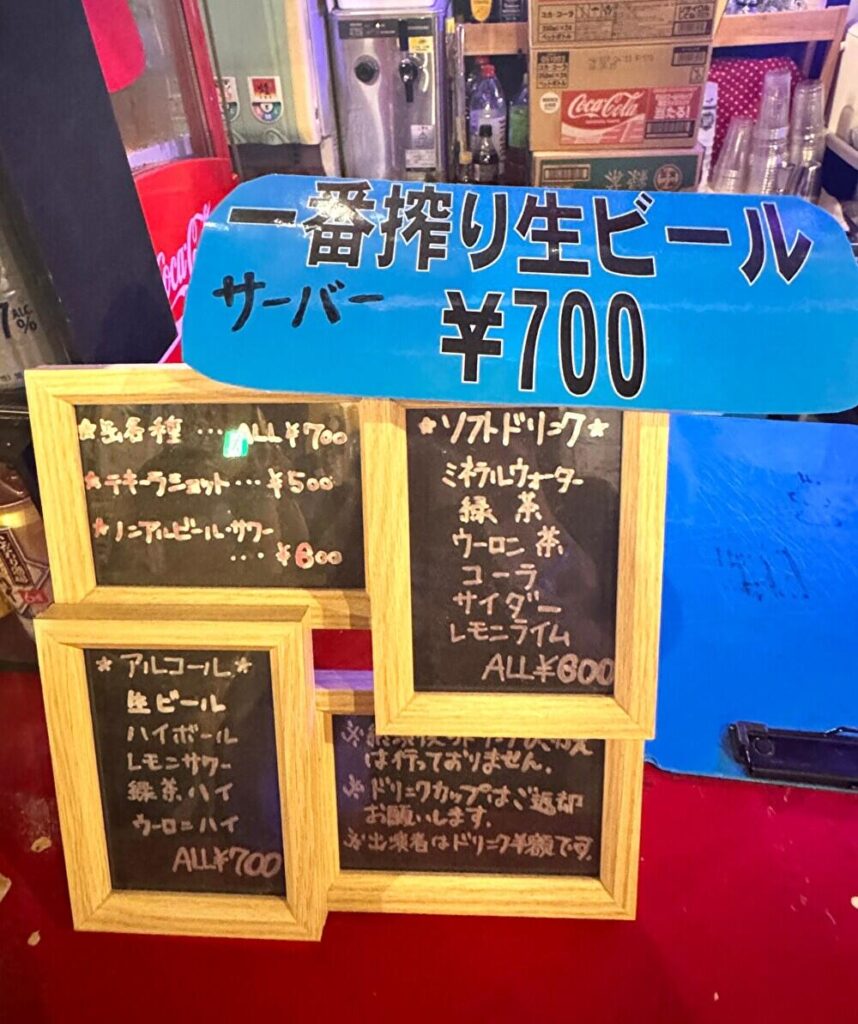 一番搾り生ビール
サーバー ¥700
Coca-Cola
Coca-Cola
当たる!
7 ALC. %
★缶各種 … ALL¥700
★テキーラショット…¥500
★ノンアルビール・サワー
… ¥600
★ソフトドリンク★
ミネラルウォーター
緑茶
ウーロン茶
コーラ
サイダー
レモンライム
ALL¥600
★アルコール★
生ビール
ハイボール
レモンサワー
緑茶ハイ
ウーロンハイ
ALL¥700
は行っておりません.
※ドリンクカップはご返却
お願いします.
※出演者はドリンク半額です.